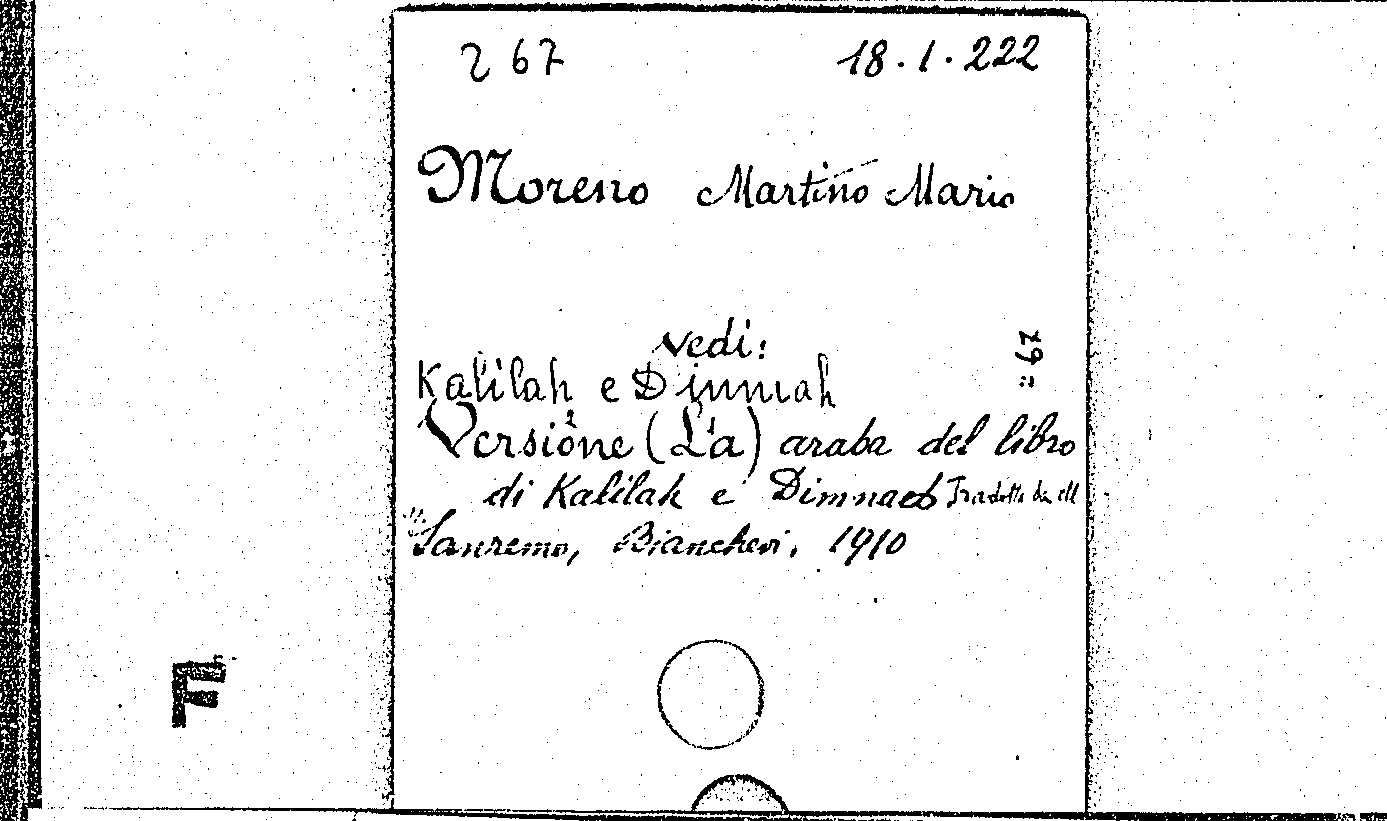 267 18.1.222
Moreno Martino Mario
vedi:
Kalilah e Dimnah
Versione (La) araba del libro
di Kalilah e Dimnaeb Tradotta da
Sanremo, Bianchevi, 1910
F